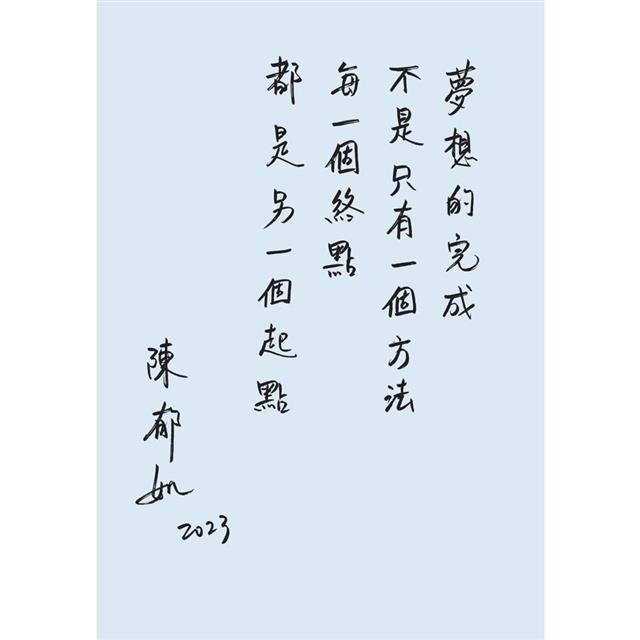 夢想的完成
不是只有一個方法
每一個終點
都是另一個起點
陳郁如
2023